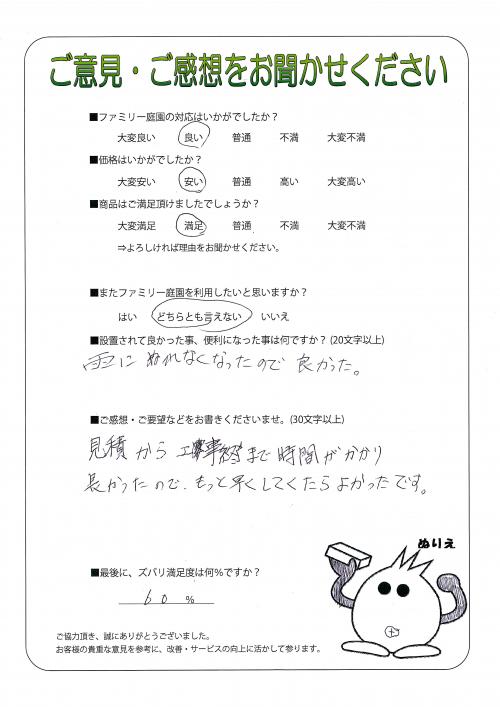 ご意見・ご感想をお聞かせください
■ファミリー庭園の対応はいかがでしたか？
大変良い 良い 普通 不満 大変不満
■価格はいかがでしたか？
大変安い 安い 普通 高い 大変高い
■商品はご満足頂けましたでしょうか？
大変満足 満足 普通 不満 大変不満
⇒よろしければ理由をお聞かせください。
■またファミリー庭園を利用したいと思いますか？
はい どちらとも言えない いいえ
■設置されて良かった事、便利になった事は何ですか？(20文字以上)
雨にぬれなくなったので良かった。
■ご感想・ご要望などをお書きくださいませ。(30文字以上)
見積から工事まで時間がかかり
長かったので、もっと早くしてくたらよかったです。
ぬりえ
■最後に、ズバリ満足度は何%ですか？
60 %
ご協力頂き、誠にありがとうございました。
お客様の貴重な意見を参考に、改善・サービスの向上に活かして参ります。